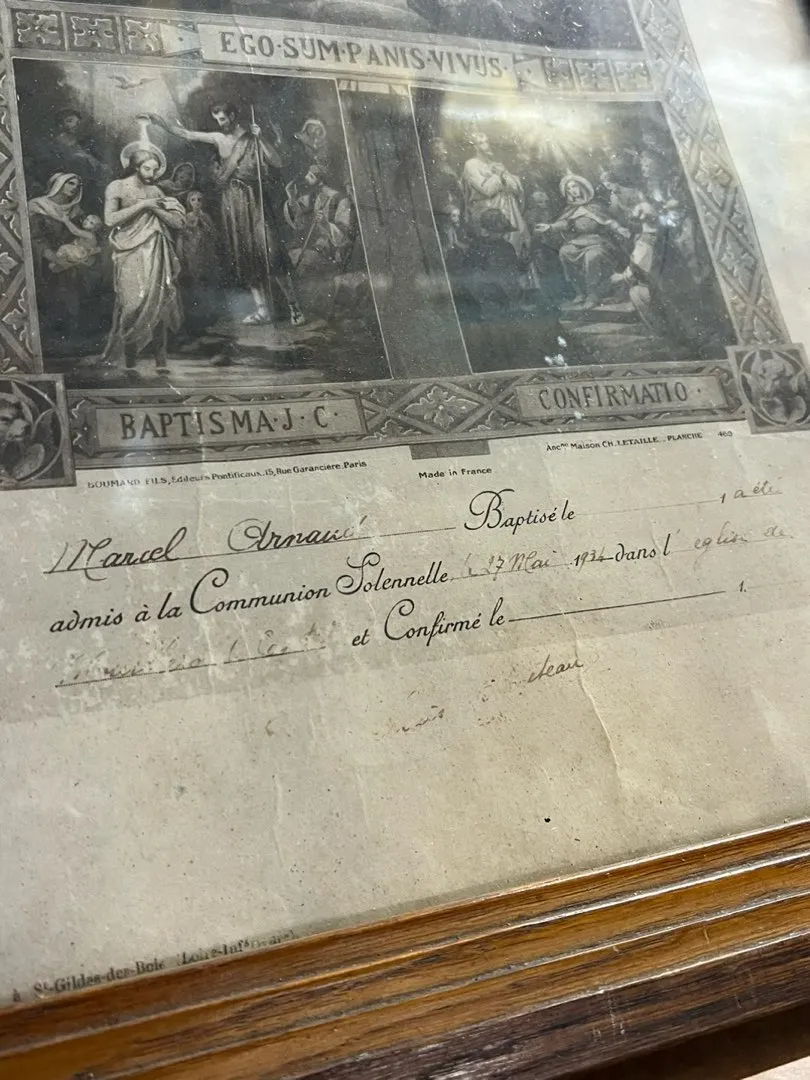 EGO·SUM·PANIS·VIVUS·
BAPTISMA·J·C·
CONFIRMATIO·
BOUMARD FILS, Editeurs Pontificaux, 15, Rue Garancière, Paris
Made in France
Ancne Maison CH. LETAILLE.. PLANCHE 469
Marcel Arnaud Baptisé le 1 a été
admis à la Communion Solennelle le 27 Mai 1934 dans l'église de
et Confirmé le 1.
à St-Gildas-des-Bois (Loire-Infre)